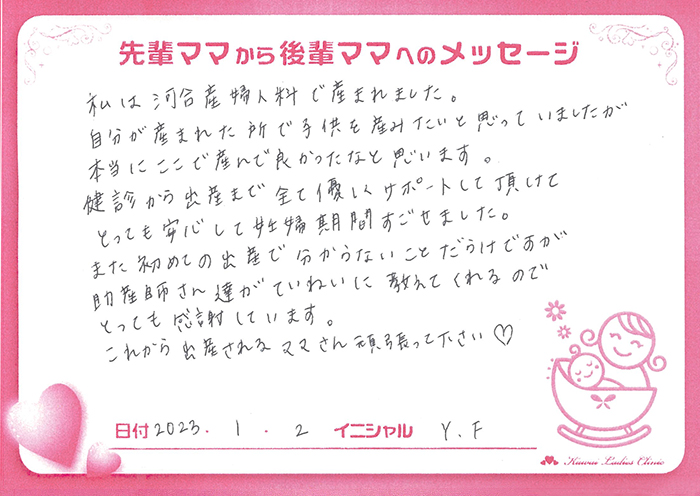 先輩ママから後輩ママへのメッセージ
私は河合産婦人科で産まれました。
自分が産まれた所で子供を産みたいと思っていましたが
本当にここで産んで良かったなと思います。
健診から出産まで全て優しくサポートして頂けて
とっても安心して妊婦期間すごせました。
また初めての出産で分からないことだらけですが
助産師さん達がていねいに教えてくれるので
とっても感謝しています。
これから出産されるママさん頑張って下さい♡
日付 2023. 1 . 2 イニシャル Y.F
Kawai Ladies Clinic